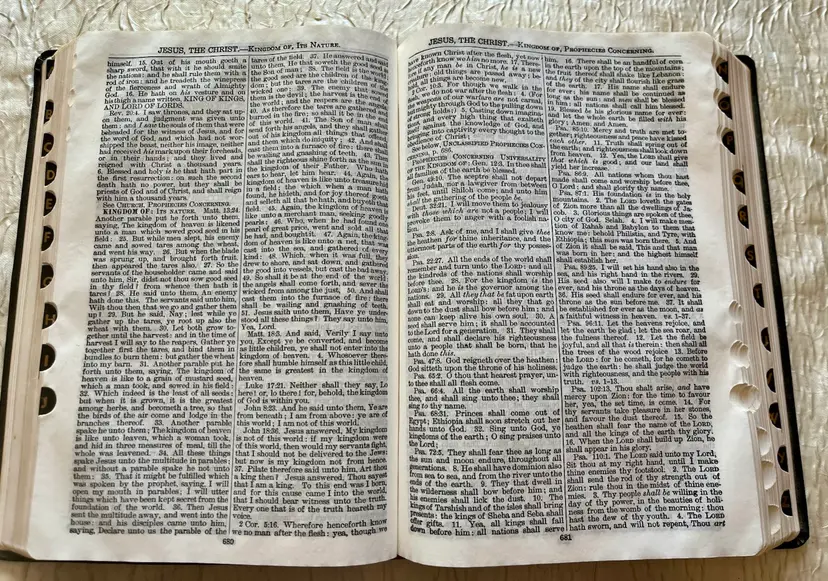 JESUS, THE CHRIST.—KINGDOM OF, ITS NATURE.
himself. 15. Out of his mouth goeth a
sharp sword, that with it he should smite
the nations: and he shall rule them with a
rod of iron: and he treadeth the winepress
of the fierceness and wrath of Almighty
God. 16. He hath on his vesture and on
his thigh a name written, KING OF KINGS,
AND LORD OF LORDS.
Rev. 20:4. I saw thrones, and they sat upon
them, and judgment was given unto
them: and I saw the souls of them that were
beheaded for the witness of Jesus, and for
the word of God, and which had not worshipped
the beast, neither his image, neither
had received his mark upon their foreheads,
or in their hands; and they lived and
reigned with Christ a thousand years.
6. Blessed and holy is he that hath part in
the first resurrection: on such the second
death hath no power, but they shall be
priests of God and of Christ, and shall reign
with him a thousand years.
See CHURCH, PROPHECIES CONCERNING.
KINGDOM OF: ITS NATURE. Matt. 13:24.
Another parable put he forth unto them,
saying, The kingdom of heaven is likened
unto a man which sowed good seed in his
field: 25. But while men slept, his enemy
came and sowed tares among the wheat,
and went his way. 26. But when the blade
was sprung up, and brought forth fruit,
then appeared the tares also. 27. So the
servants of the householder came and said
unto him, Sir, didst not thou sow good seed
in thy field? from whence then hath it
tares? 28. He said unto them, An enemy
hath done this. The servants said unto him,
Wilt thou then that we go and gather them
up? 29. But he said, Nay; lest while ye
gather up the tares, ye root up also the
wheat with them. 30. Let both grow together
until the harvest: and in the time of
harvest I will say to the reapers, Gather ye
together first the tares, and bind them in
bundles to burn them: but gather the wheat
into my barn. 31. Another parable put he
forth unto them, saying, The kingdom of
heaven is like to a grain of mustard seed,
which a man took, and sowed in his field:
32. Which indeed is the least of all seeds:
but when it is grown, it is the greatest
among herbs, and becometh a tree, so that
the birds of the air come and lodge in the
branches thereof. 33. Another parable
spake he unto them; The kingdom of heaven
is like unto leaven, which a woman took,
and hid in three measures of meal, till the
whole was leavened. 34. All these things
spake Jesus unto the multitude in parables;
and without a parable spake he not unto
them: 35. That it might be fulfilled which
was spoken by the prophet, saying, I will
open my mouth in parables; I will utter
things which have been kept secret from the
foundation of the world. 36. Then Jesus
sent the multitude away, and went into the
house: and his disciples came unto him,
saying, Declare unto us the parable of the
tares of the field. 37. He answered and said
unto them, He that soweth the good seed is
the Son of man; 38. The field is the world;
the good seed are the children of the kingdom;
but the tares are the children of the
wicked one; 39. The enemy that sowed
them is the devil; the harvest is the end of the
world; and the reapers are the angels.
40. As therefore the tares are gathered and
burned in the fire; so shall it be in the end
of this world. 41. The Son of man shall
send forth his angels, and they shall gather
out of his kingdom all things that offend,
and them which do iniquity; 42. And shall
cast them into a furnace of fire: there shall
be wailing and gnashing of teeth. 43. Then
shall the righteous shine forth as the sun in
the kingdom of their Father. Who hath
ears to hear, let him hear. 44. Again, the
kingdom of heaven is like unto treasure hid
in a field; the which when a man hath
found, he hideth, and for joy thereof goeth
and selleth all that he hath, and buyeth that
field. 45. Again, the kingdom of heaven is
like unto a merchant man, seeking goodly
pearls: 46. Who, when he had found one
pearl of great price, went and sold all that
he had, and bought it. 47. Again, the kingdom
of heaven is like unto a net, that was
cast into the sea, and gathered of every
kind: 48. Which, when it was full, they
drew to shore, and sat down, and gathered
the good into vessels, but cast the bad away.
49. So shall it be at the end of the world:
the angels shall come forth, and sever the
wicked from among the just, 50. And shall
cast them into the furnace of fire: there
shall be wailing and gnashing of teeth.
51. Jesus saith unto them, Have ye understood
all these things? They say unto him,
Yea, Lord.
Matt. 18:3. And said, Verily I say unto
you, Except ye be converted, and become
as little children, ye shall not enter into the
kingdom of heaven. 4. Whosoever therefore
shall humble himself as this little child,
the same is greatest in the kingdom of
heaven.
Luke 17:21. Neither shall they say, Lo
here! or, lo there! for, behold, the kingdom
of God is within you.
John 8:23. And he said unto them, Ye are
from beneath; I am from above: ye are of
this world; I am not of this world.
John 18:36. Jesus answered, My kingdom
is not of this world: if my kingdom were
of this world, then would my servants fight,
that I should not be delivered to the Jews:
but now is my kingdom not from hence.
37. Pilate therefore said unto him, Art thou
a king then? Jesus answered, Thou sayest
that I am a king. To this end was I born,
and for this cause came I into the world,
that I should bear witness unto the truth.
Every one that is of the truth heareth my
voice.
2 Cor. 5:16. Wherefore henceforth know
we no man after the flesh: yea, though we
680
JESUS, THE CHRIST.—KINGDOM OF, PROPHECIES CONCERNING.
have known Christ after the flesh, yet now
henceforth know we him no more. 17. Therefore
if any man be in Christ, he is a new
creature: old things are passed away; behold,
all things are become new.
2 Cor. 10:3. For though we walk in the
flesh, we do not war after the flesh: 4. (For
the weapons of our warfare are not carnal,
but mighty through God to the pulling down
of strong holds;) 5. Casting down imaginations,
and every high thing that exalteth
itself against the knowledge of God, and
bringing into captivity every thought to the
obedience of Christ;
See below, UNCLASSIFIED PROPHECIES CONCERNING,
p. 686.
PROPHECIES CONCERNING UNIVERSALITY
OF THE KINGDOM OF: Gen. 12:3. In thee shall
all families of the earth be blessed.
Gen. 49:10. The sceptre shall not depart
from Judah, nor a lawgiver from between
his feet, until Shiloh come; and unto him
shall the gathering of the people be.
Deut. 32:21. I will move them to jealousy
with those which are not a people; I will
provoke them to anger with a foolish nation.
Psa. 2:8. Ask of me, and I shall give thee
the heathen for thine inheritance, and the
uttermost parts of the earth for thy possession.
Psa. 22:27. All the ends of the world shall
remember and turn unto the LORD: and all
the kindreds of the nations shall worship
before thee. 28. For the kingdom is the
LORD's: and he is the governor among the
nations. 29. All they that be fat upon earth
shall eat and worship: all they that go
down to the dust shall bow before him: and
none can keep alive his own soul. 30. A
seed shall serve him; it shall be accounted
to the Lord for a generation. 31. They shall
come, and shall declare his righteousness
unto a people that shall be born, that he
hath done this.
Psa. 47:8. God reigneth over the heathen:
God sitteth upon the throne of his holiness.
Psa. 65:2. O thou that hearest prayer, unto
thee shall all flesh come.
Psa. 66:4. All the earth shall worship
thee, and shall sing unto thee; they shall
sing to thy name.
Psa. 68:31. Princes shall come out of
Egypt; Ethiopia shall soon stretch out her
hands unto God. 32. Sing unto God, ye
kingdoms of the earth; O sing praises unto
the Lord;
Psa. 72:5. They shall fear thee as long as
the sun and moon endure, throughout all
generations. 8. He shall have dominion also
from sea to sea, and from the river unto the
ends of the earth. 9. They that dwell in
the wilderness shall bow before him; and
his enemies shall lick the dust. 10. The
kings of Tarshish and of the isles shall bring
presents: the kings of Sheba and Seba shall
offer gifts. 11. Yea, all kings shall fall
down before him: all nations shall serve
him. 16. There shall be an handful of corn
in the earth upon the top of the mountains;
the fruit thereof shall shake like Lebanon:
and they of the city shall flourish like grass
of the earth. 17. His name shall endure
for ever: his name shall be continued as
long as the sun: and men shall be blessed
in him: all nations shall call him blessed.
19. Blessed be his glorious name for ever:
and let the whole earth be filled with his
glory; Amen, and Amen.
Psa. 85:10. Mercy and truth are met together;
righteousness and peace have kissed
each other. 11. Truth shall spring out of
the earth; and righteousness shall look down
from heaven. 12. Yea, the LORD shall give
that which is good; and our land shall
yield her increase.
Psa. 86:9. All nations whom thou hast
made shall come and worship before thee,
O Lord; and shall glorify thy name.
Psa. 87:1. His foundation is in the holy
mountains. 2. The LORD loveth the gates
of Zion more than all the dwellings of Jacob.
3. Glorious things are spoken of thee,
O city of God. Selah. 4. I will make mention
of Rahab and Babylon to them that
know me: behold Philistia, and Tyre, with
Ethiopia; this man was born there. 5. And
of Zion it shall be said, This and that man
was born in her: and the highest himself
shall establish her.
Psa. 89:25. I will set his hand also in the
sea, and his right hand in the rivers. 29.
His seed also will I make to endure for
ever, and his throne as the days of heaven.
36. His seed shall endure for ever, and his
throne as the sun before me. 37. It shall
be established for ever as the moon, and as
a faithful witness in heaven. vs. 1-37.
Psa. 96:11. Let the heavens rejoice, and
let the earth be glad; let the sea roar, and
the fulness thereof. 12. Let the field be
joyful, and all that is therein: then shall all
the trees of the wood rejoice 13. Before
the LORD: for he cometh, for he cometh to
judge the earth: he shall judge the world
with righteousness, and the people with his
truth. vs. 1-13.
Psa. 102:13. Thou shalt arise, and have
mercy upon Zion: for the time to favour
her, yea, the set time, is come. 14. For
thy servants take pleasure in her stones,
and favour the dust thereof. 15. So the
heathen shall fear the name of the LORD,
and all the kings of the earth thy glory.
16. When the LORD shall build up Zion, he
shall appear in his glory.
Psa. 110:1. The LORD said unto my Lord,
Sit thou at my right hand, until I make
thine enemies thy footstool. 2. The LORD
shall send the rod of thy strength out of
Zion: rule thou in the midst of thine enemies.
3. Thy people shall be willing in the
day of thy power, in the beauties of holiness
from the womb of the morning: thou
hast the dew of thy youth. 4. The LORD
hath sworn, and will not repent, Thou art
681